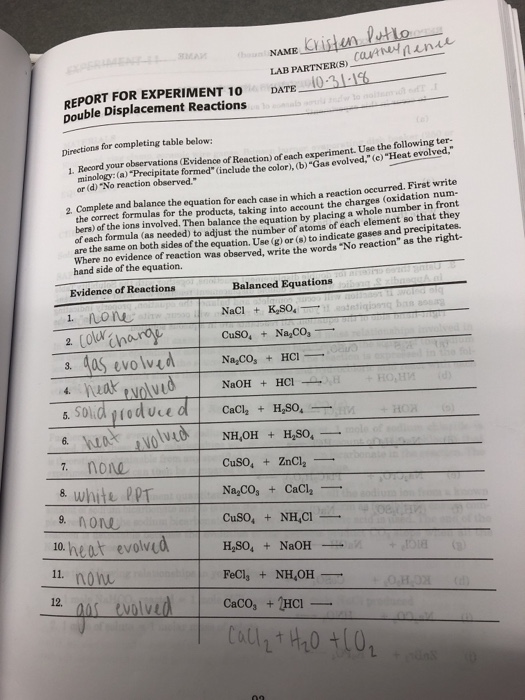 NAME Kristen
LAB PARTNER(S)
DATE 10-31-18
REPORT FOR EXPERIMENT 10
Double Displacement Reactions
Directions for completing table below:
1. Record your observations (Evidence of Reaction) of each experiment. Use the following ter-
minology: (a) "Precipitate formed" (include the color), (b) "Gas evolved," (c) "Heat evolved,"
or (d) "No reaction observed."
2. Complete and balance the equation for each case in which a reaction occurred. First write
the correct formulas for the products, taking into account the charges (oxidation num-
bers) of the ions involved. Then balance the equation by placing a whole number in front
of each formula (as needed) to adjust the number of atoms of each element so that they
are the same on both sides of the equation. Use (g) or (s) to indicate gases and precipitates.
Where no evidence of reaction was observed, write the words "No reaction" as the right-
hand side of the equation.
Evidence of Reactions Balanced Equations
1. none NaCl + K₂SO₄ →
2. color change CuSO₄ + Na₂CO₃ →
3. gas evolved Na₂CO₃ + HCl →
4. heat evolved NaOH + HCl →
5. solid produced CaCl₂ + H₂SO₄ →
6. heat evolved NH₄OH + H₂SO₄ →
7. none CuSO₄ + ZnCl₂ →
8. white PPT Na₂CO₃ + CaCl₂ →
9. none CuSO₄ + NH₄Cl →
10. heat evolved H₂SO₄ + NaOH →
11. none FeCl₃ + NH₄OH →
12. gas evolved CaCO₃ + 2HCl →
CaCl₂ + H₂O + CO₂